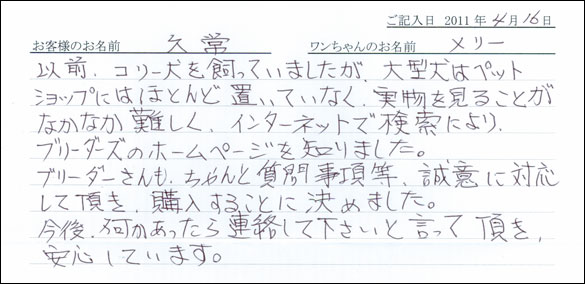 ご記入日 2011年4月16日
お客様のお名前 久常 ワンちゃんのお名前 メリー
以前、コリー犬を飼っていましたが、大型犬はペット
ショップにはほとんど置いていなく、実物を見ることが
なかなか難しく、インターネットで検索により、
ブリーダーズのホームページを知りました。
ブリーダーさんも、ちゃんと質問事項等、誠意に対応
して頂き、購入することに決めました。
今後、何かあったら連絡して下さいと言って頂き、
安心しています。